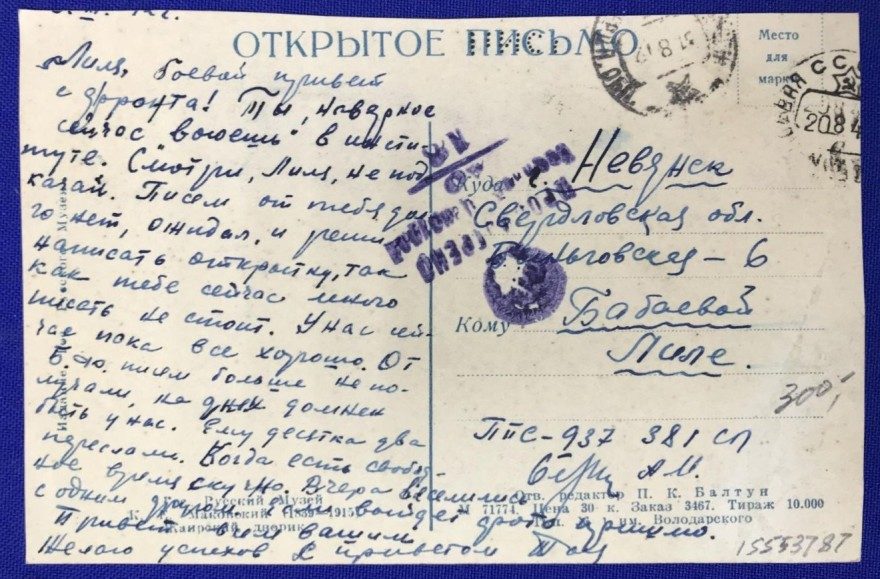 ОТКРЫТОЕ ПИСЬМО
Место
для
марки
Лиля, боевой привет
с фронта! Ты, наверное
сейчас "воюешь" в инсти-
туте. Смотри, Лиля, не под-
качай. Писем от тебя дол-
го нет, ожидал, и решил
написать открытку, так
как тебе сейчас много
писать не стоит. У нас сей-
час пока все хорошо. От
писем больше не по-
лучали, на днях должен
быть у нас. Ему десятка два
переслали. Когда есть свобод-
ное время скучно. Вчера веселились
с одним
Привет всем вашим
Желаю успехов С приветом
Куда г. Невянск
Свердловская обл.
Быньговская - 6
Кому Бабаевой
Лиле.
ППС-937 381 сп
ПРОСМОТРЕНО
Военной Цензурой
20.8.4
300,
Гос. Русский Музей
К. Е. Маковский (1839-1915)
Каирский дворик
Отв. редактор П. К. Балтун
М 71774. Цена 30 к. Заказ 3467. Тираж 10.000
им. Володарского
15553787